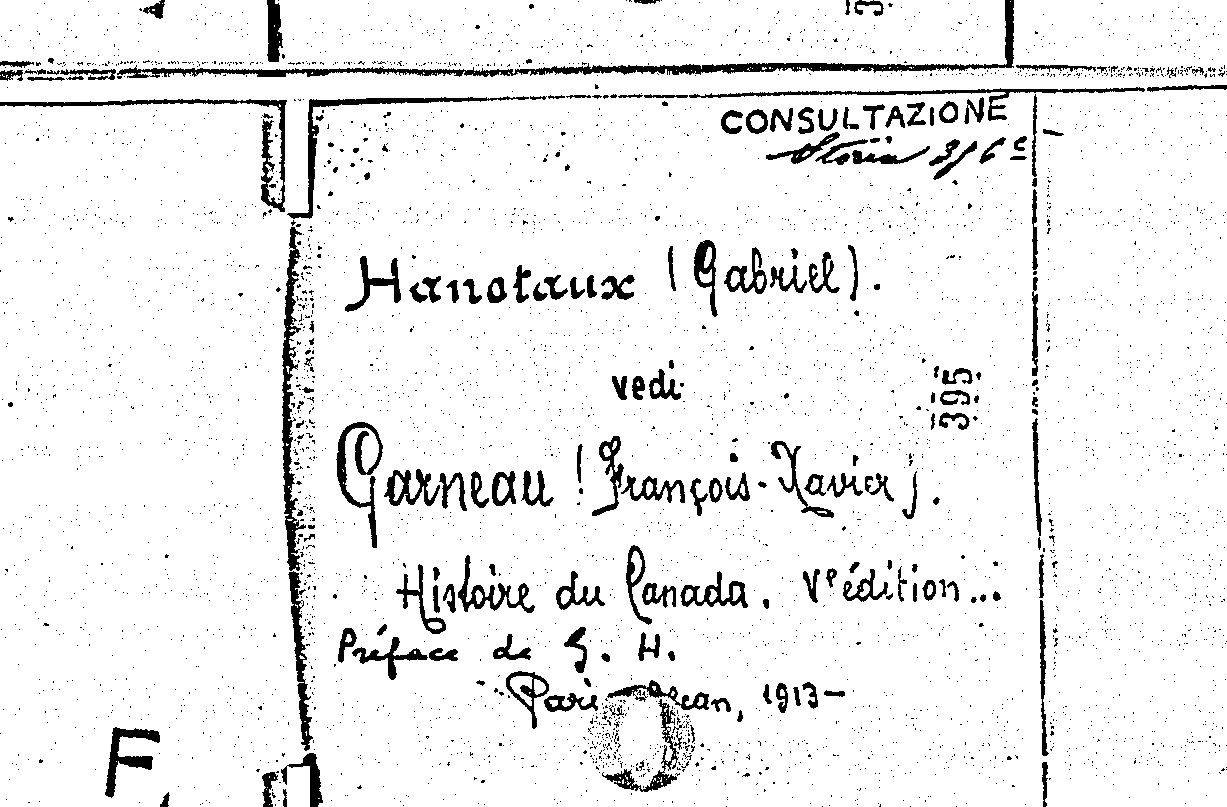 CONSULTAZIONE
Storia
Hanotaux (Gabriel).
vedi
395
Garneau (François-Xavier).
Histoire du Canada. Vᵉ édition...
Préface de G. H.
1913-
F